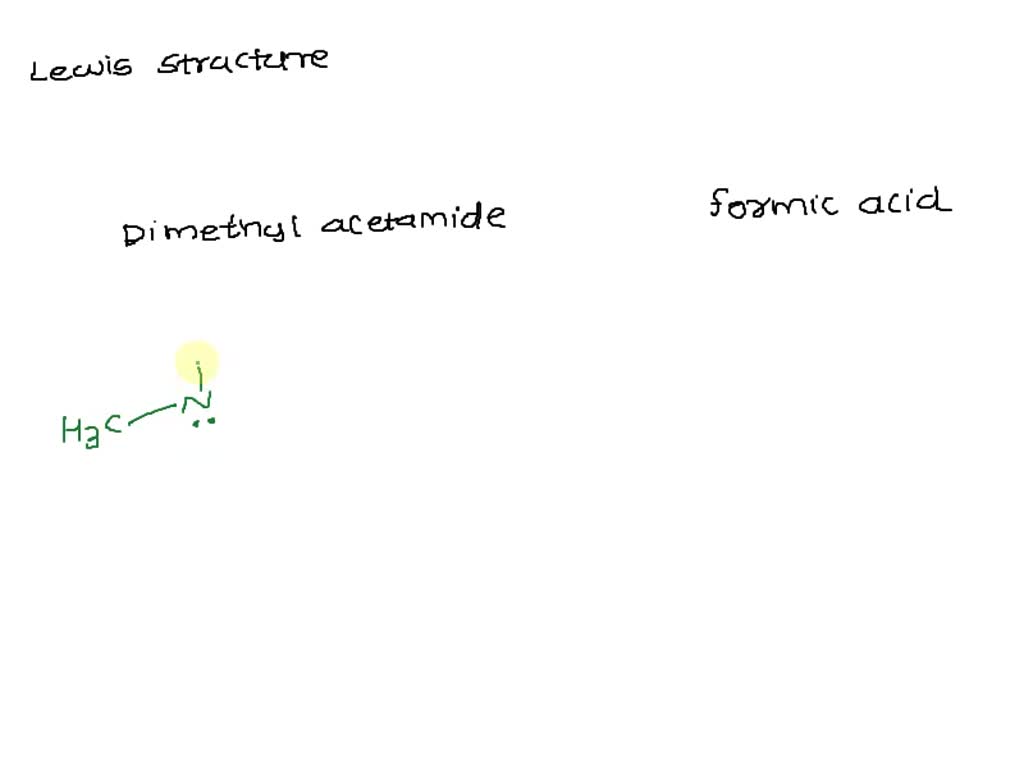 Lewis structure
Dimethyl acetamide
formic acid
N
H3C